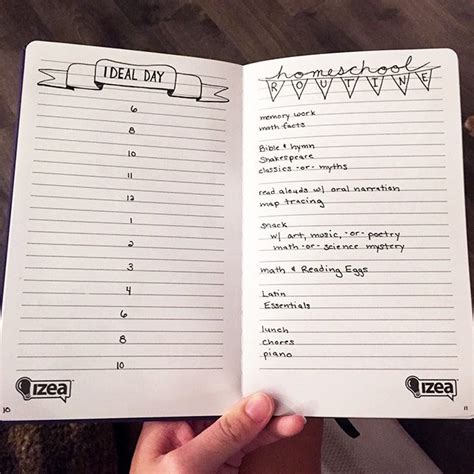 IDEAL DAY
6
8
10
11
12
1
2
3
4
6
8
10
izea
10
homeschool
ROUTINE
memory work
math facts
Bible & hymn
Shakespeare
classics -or- myths
read alouds w/ oral narration
map tracing
snack
w/ art, music, -or- poetry
math -or- science mystery
math & Reading Eggs
Latin
Essentials
lunch
chores
piano
izea
11